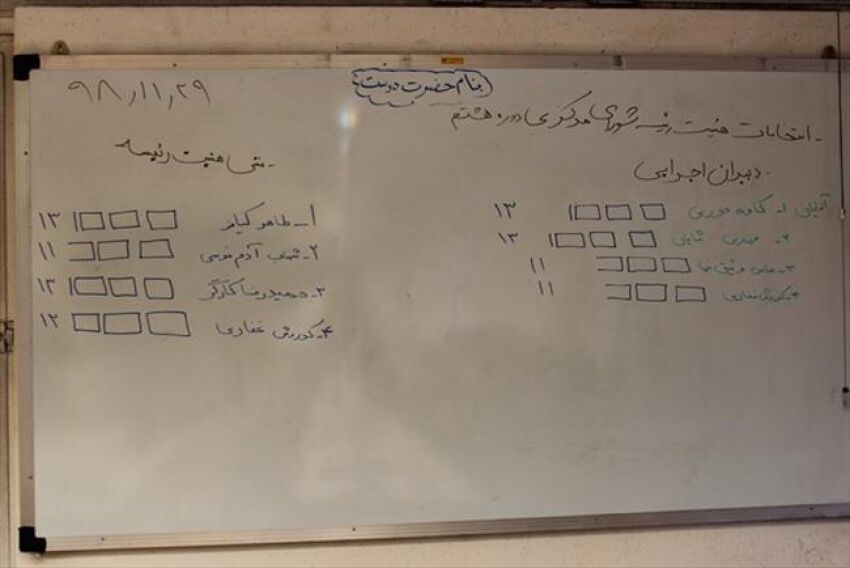 بنام حضرت دوست
۹۸٫۱۱٫۲۹
- انتخابات هیئت رئیسه شورای مرکزی دوره هشتم
- دبیران اجرایی
آقایان ۱- کاوه ۱۳
۲- مهدی ۱۳
۳- ۱۱
۴- کورش غفاری ۱۱
- منشی هیئت رئیسه
۱- طاهر ۱۳
۲- شهاب آدم نوسی ۱۱
۳- حمیدرضا کارگر ۱۳
۴- کورش غفاری ۱۲